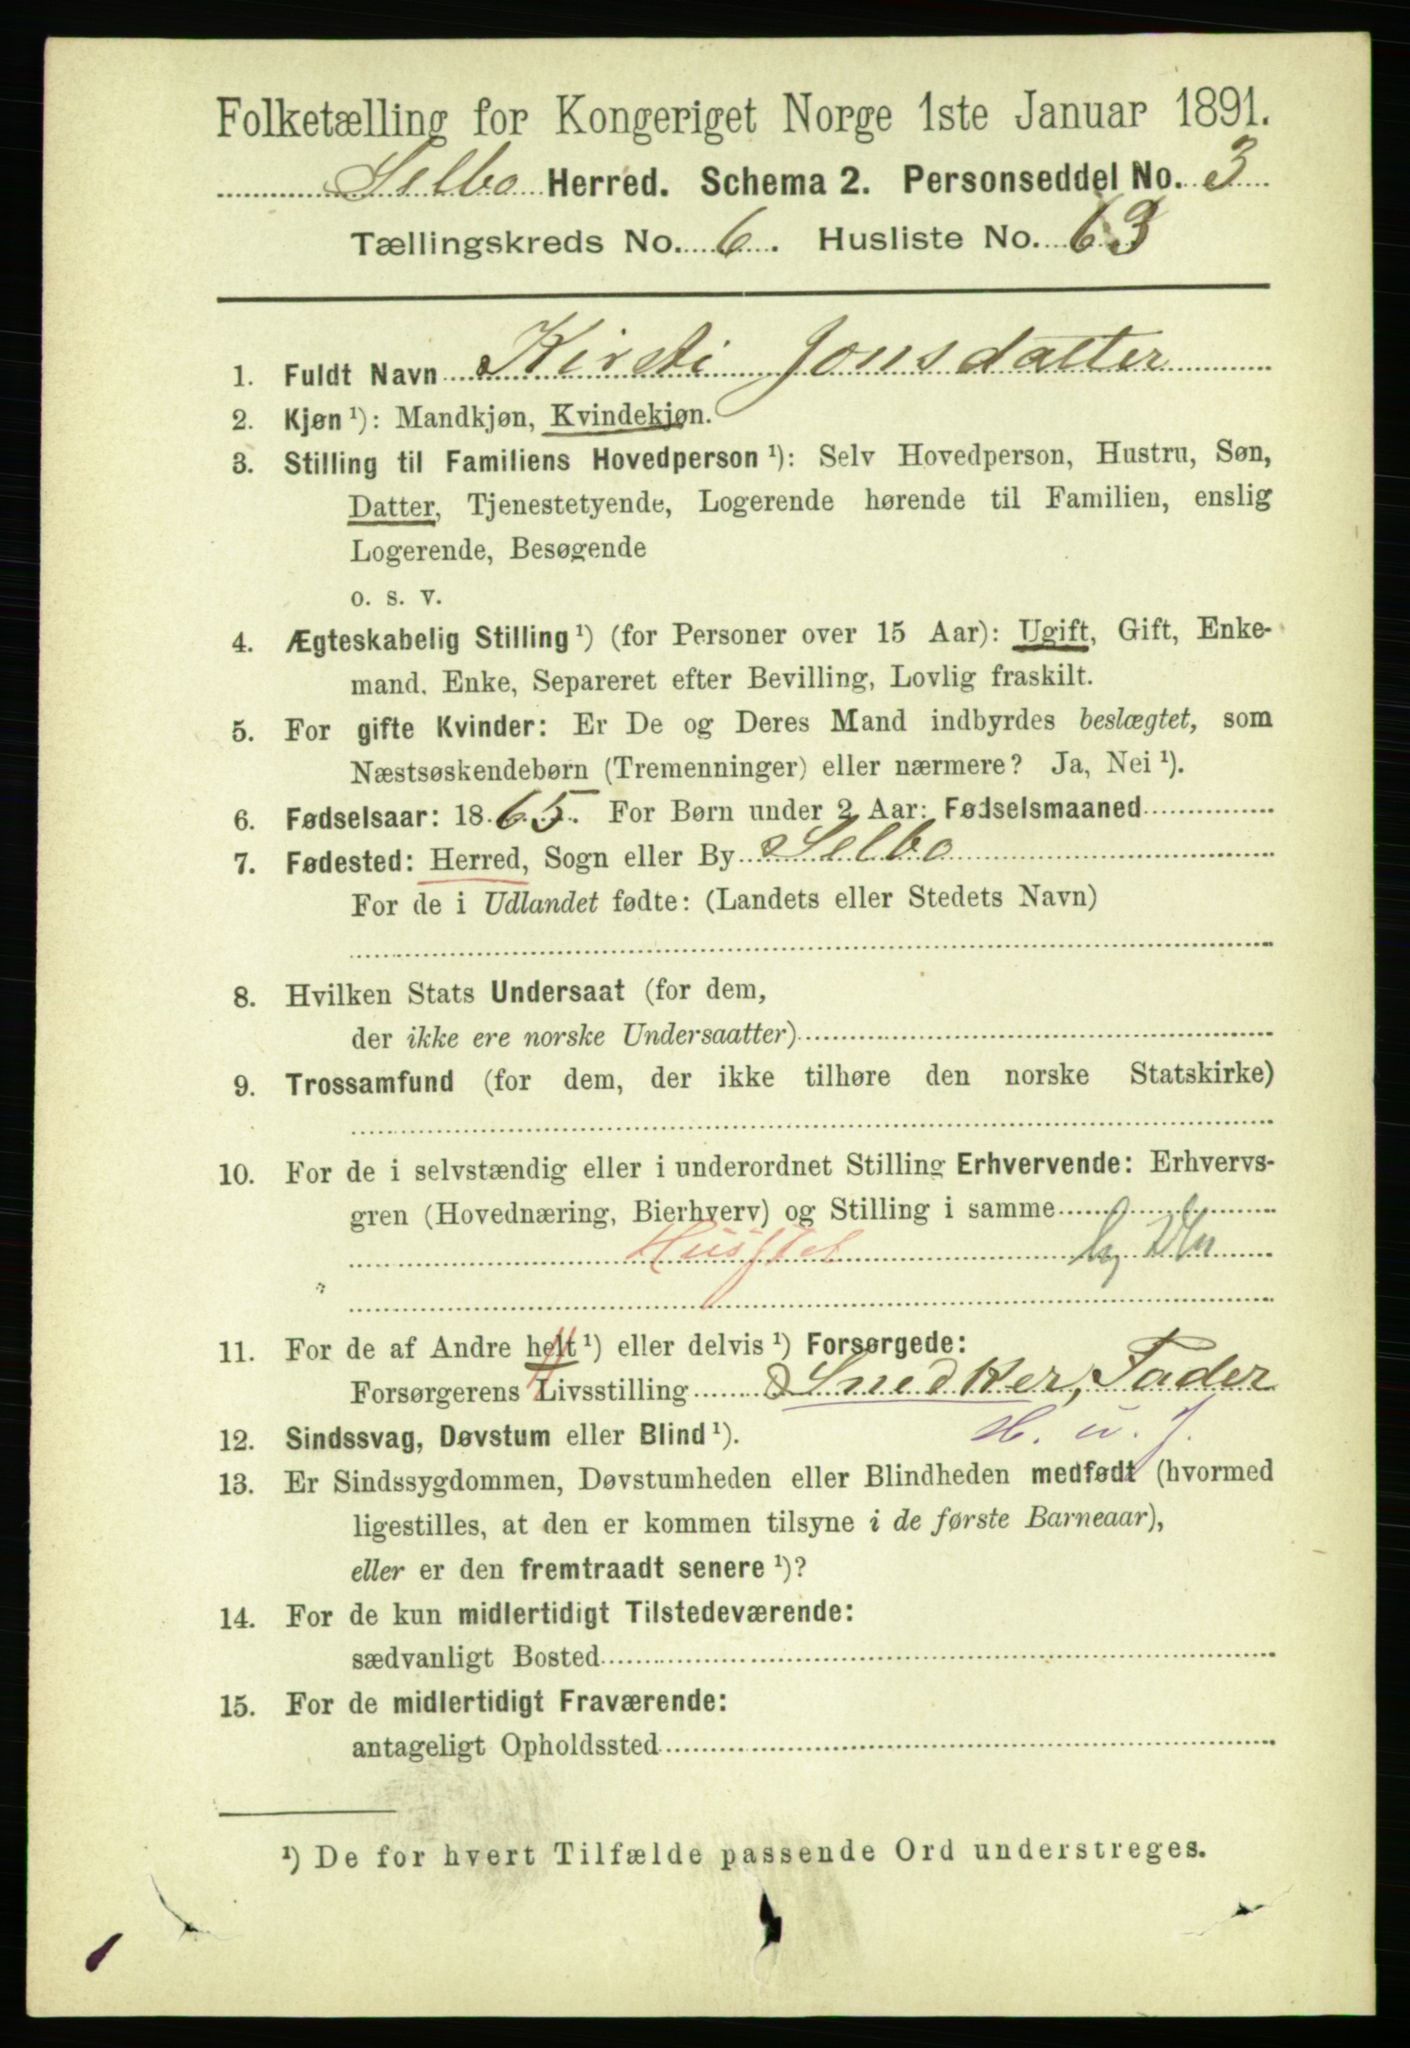 Folketælling for Kongeriget Norge 1ste Januar 1891.
Selbo Herred. Schema 2. Personseddel No. 3
Tællingskreds No. 6. Husliste No. 63
1. Fuldt Navn Kirsti Jonsdatter
2. Kjøn ¹): Mandkjøn, Kvindekjøn.
3. Stilling til Familiens Hovedperson ¹): Selv Hovedperson, Hustru, Søn,
Datter, Tjenestetyende, Logerende hørende til Familien, enslig
Logerende, Besøgende
o. s. v.
4. Ægteskabelig Stilling ¹) (for Personer over 15 Aar): Ugift, Gift, Enke-
mand, Enke, Separeret efter Bevilling, Lovlig fraskilt.
5. For gifte Kvinder: Er De og Deres Mand indbyrdes beslægtet, som
Næstsøskendebørn (Tremenninger) eller nærmere? Ja, Nei ¹).
6. Fødselsaar: 1865. For Børn under 2 Aar: Fødselsmaaned
7. Fødested: Herred, Sogn eller By Selbo
For de i Udlandet fødte: (Landets eller Stedets Navn)
8. Hvilken Stats Undersaat (for dem,
der ikke ere norske Undersaatter)
9. Trossamfund (for dem, der ikke tilhøre den norske Statskirke)
10. For de i selvstændig eller i underordnet Stilling Erhvervende: Erhvervs-
gren (Hovednæring, Bierhverv) og Stilling i samme
Husstel
11. For de af Andre helt ¹) eller delvis ¹) Forsørgede:
Forsørgerens Livsstilling Snedker, Fader
H. u. J.
12. Sindssvag, Døvstum eller Blind ¹).
13. Er Sindssygdommen, Døvstumheden eller Blindheden medfødt (hvormed
ligestilles, at den er kommen tilsyne i de første Barneaar),
eller er den fremtraadt senere ¹)?
14. For de kun midlertidigt Tilstedeværende:
sædvanligt Bosted
15. For de midlertidigt Fraværende:
antageligt Opholdssted
¹) De for hvert Tilfælde passende Ord understreges.